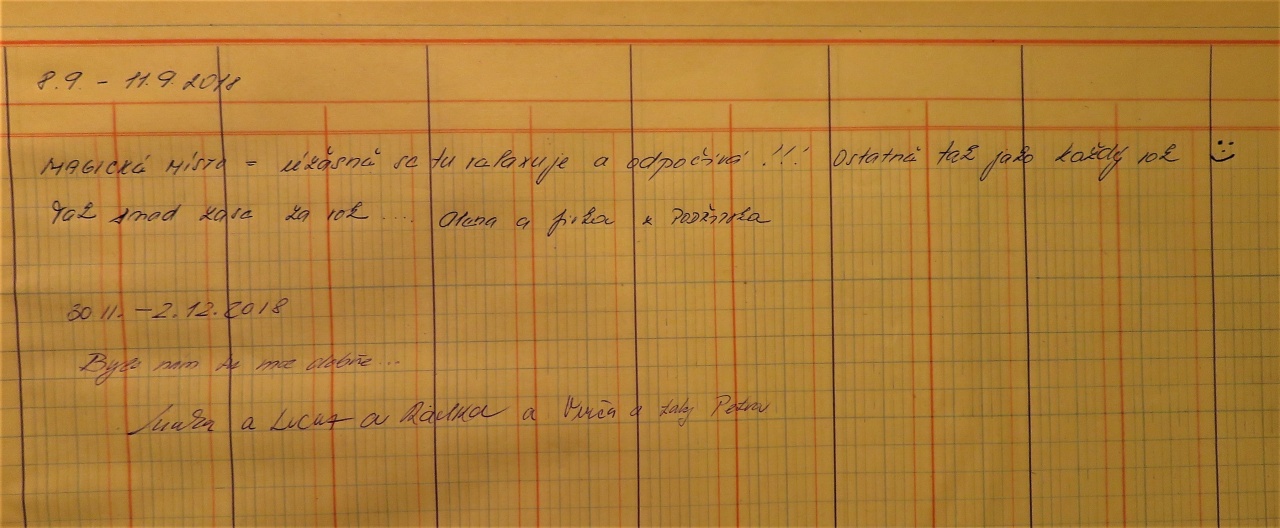 8.9. - 11.9.2018
MAGICKÉ MÍSTO = úžasně se tu relaxuje a odpočívá !!! Ostatně tak jako každý rok :)
Tak snad zase za rok .... Alena a Jirka z
30.11. - 2.12.2018
Bylo nám tu moc dobře...
a a a a taky Petra